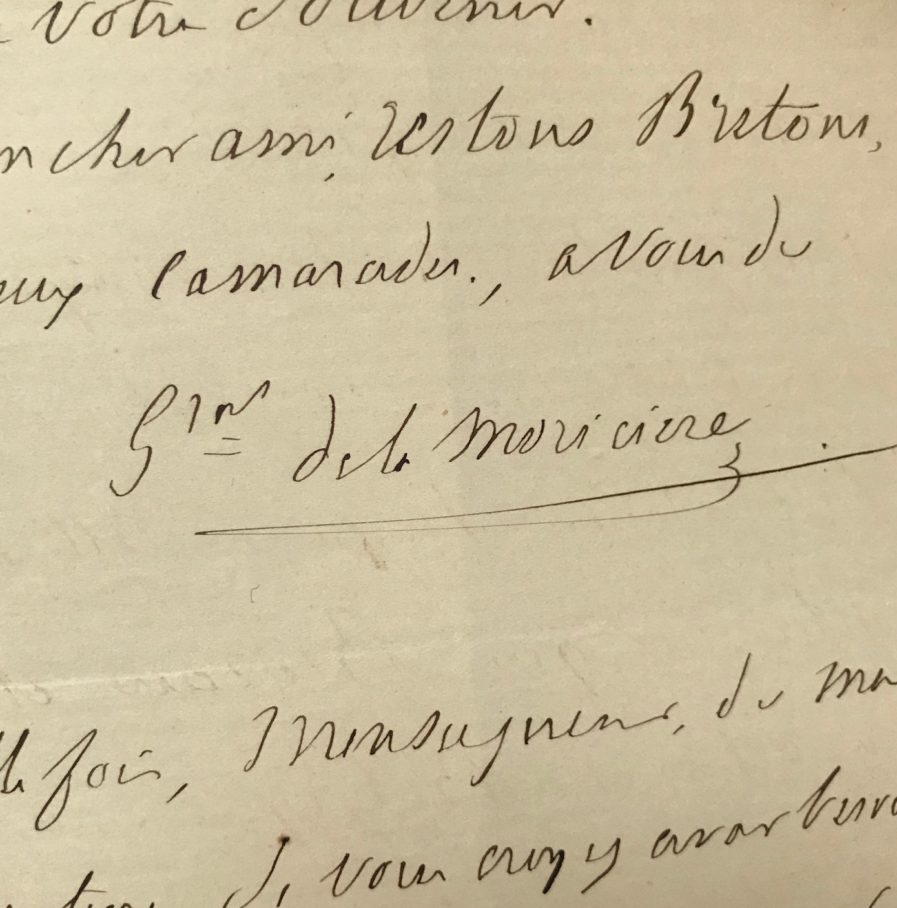 Votre Souvenir.
n cher ami, restons Bretons,
eux Camarades., a vous de
Gral de la moriciere
la fois, Monseigneur, de ma
Si vous croyez avoir